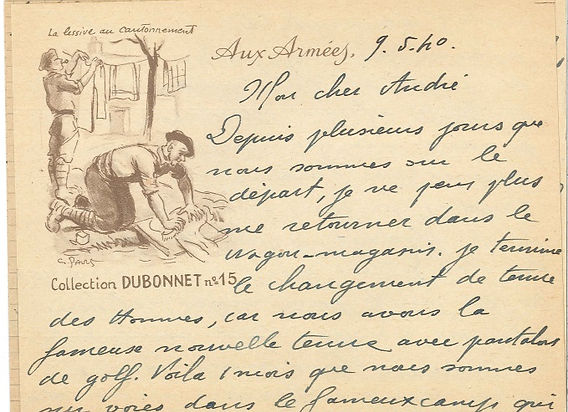 La lessive au cantonnement
Aux Armées, 9.5.40.
Mon cher André
Depuis plusieurs jours que
nous sommes sur le
départ, je ne peux plus
me retourner dans le
wagon-magasin. je termine
Collection DUBONNET nº15
le changement de tenue
des Hommes, car nous avons la
fameuse nouvelle tenue avec pantalons
de golf. Voila 1 mois que nous sommes
dans le fameux camp qui